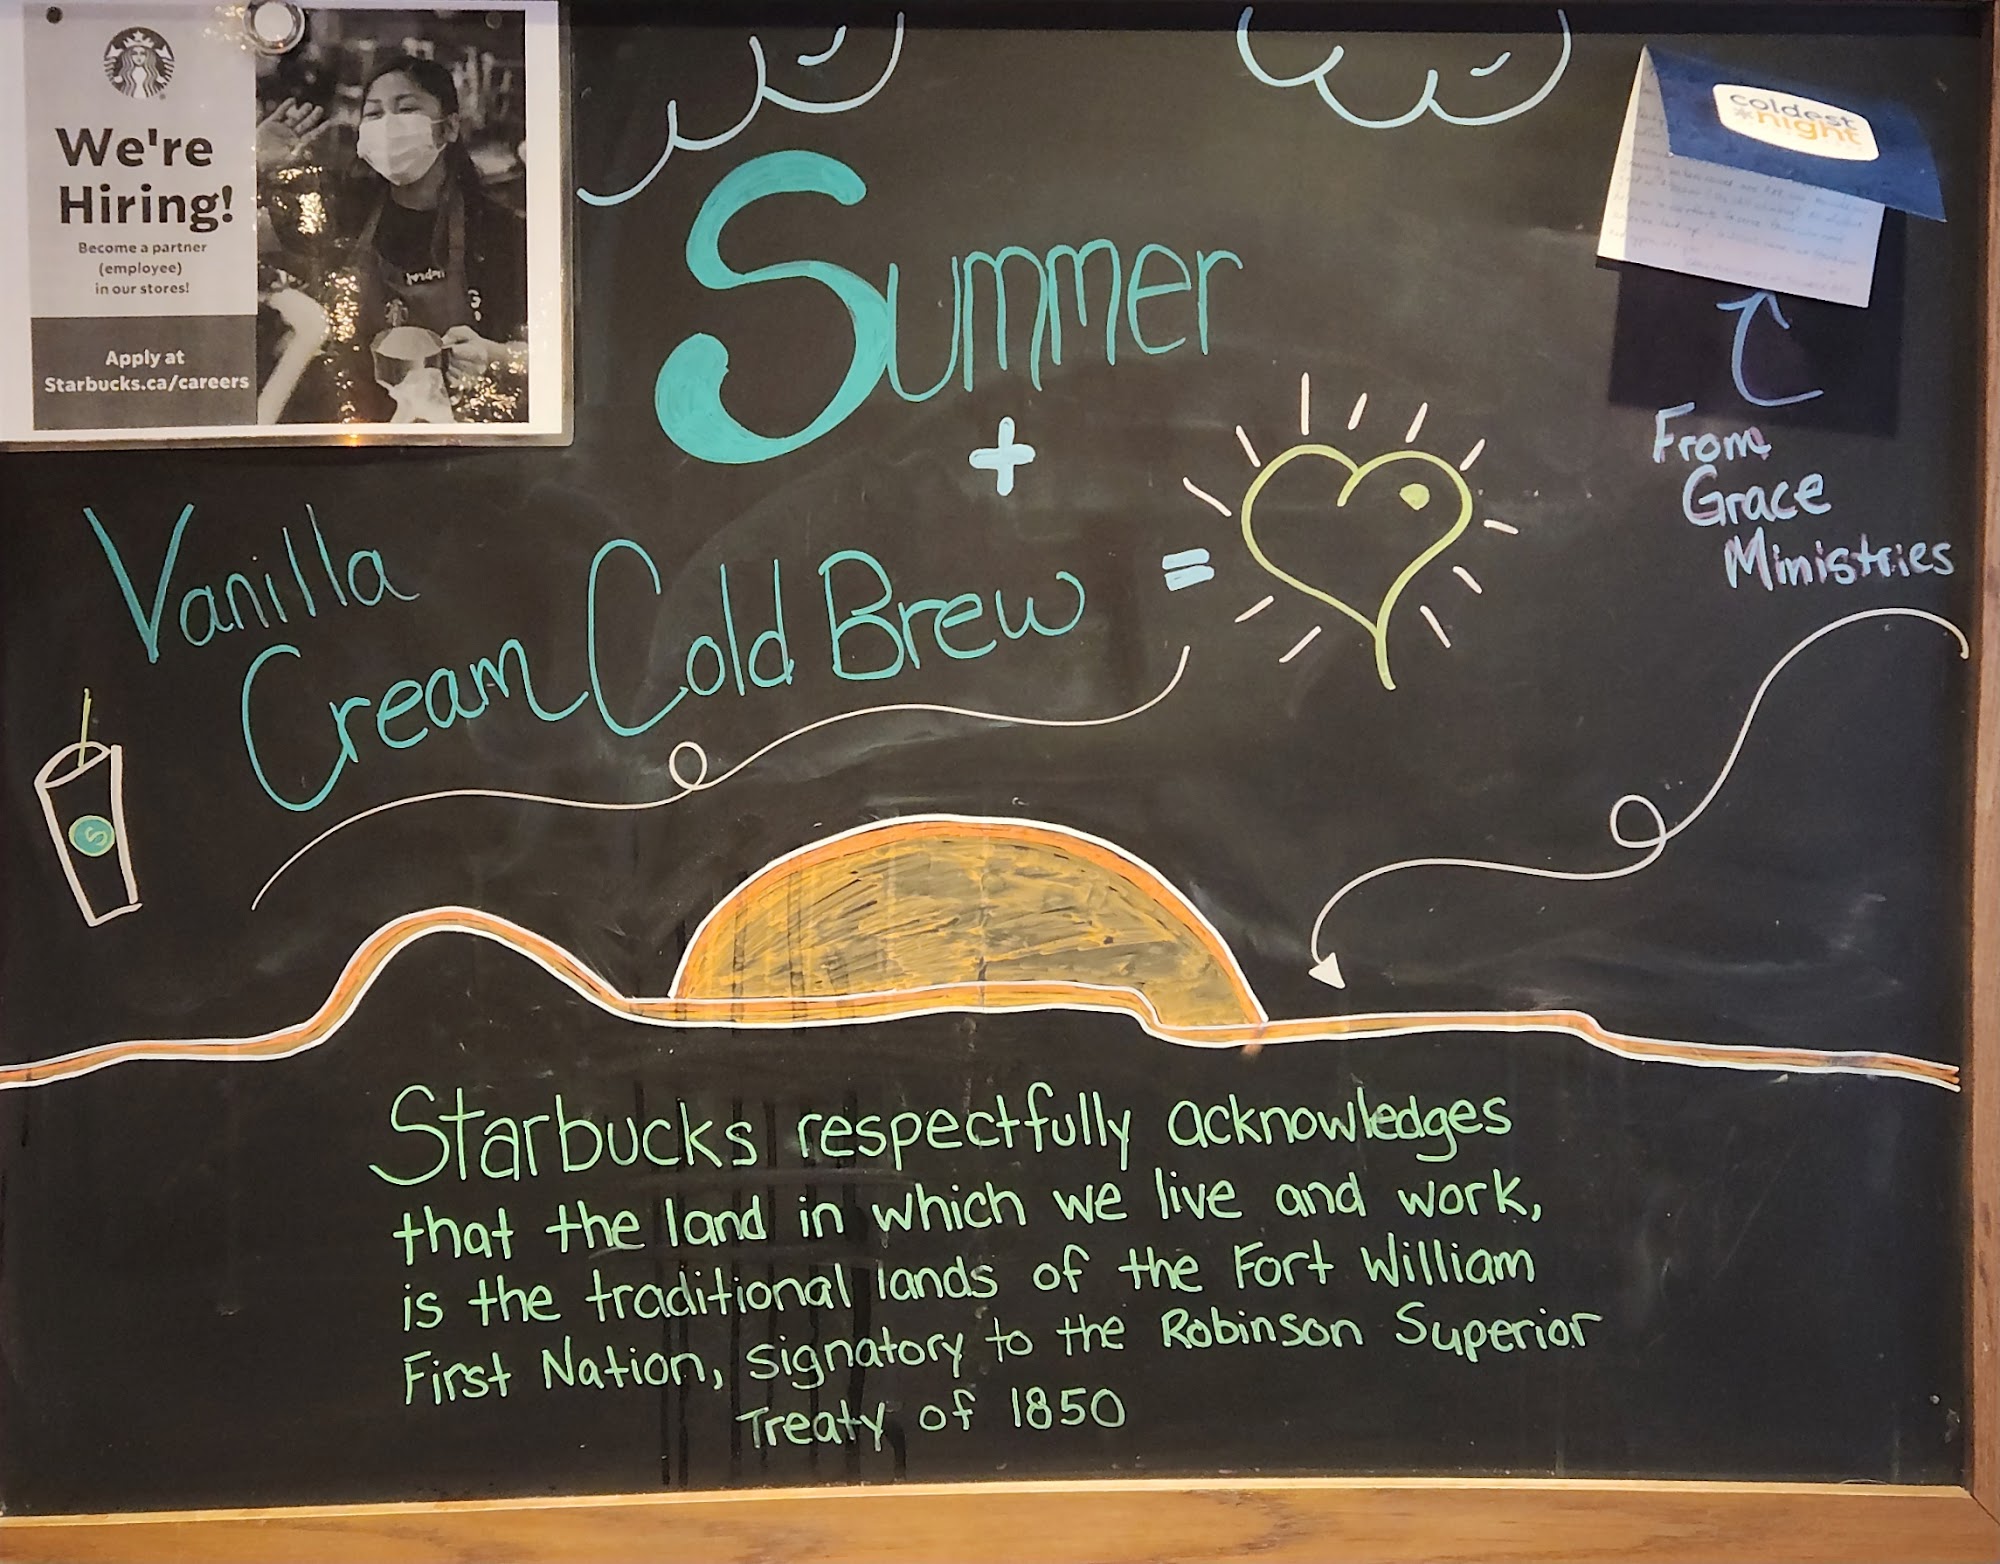 We're
Hiring!
Become a partner
(employee)
in our stores!
Apply at
Starbucks.ca/careers
coldest
night
Summer
+
From
Grace
Ministries
Vanilla
Cream Cold Brew =
S
Starbucks respectfully acknowledges
that the land in which we live and work,
is the traditional lands of the Fort William
First Nation, signatory to the Robinson Superior
Treaty of 1850